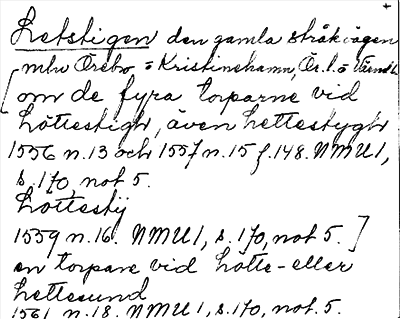 Letstigen den gamla stråkvägen
mlw Örebro = Kristinehamn, Ör. l. = Värml.
[om de fyra torparne vid
Löttestigh, även hettestygh
1556 n. 13 och 1557 n. 15 f. 148. NMU 1,
s. 170, not 5.
Lottestij
1559 n. 16. NMU 1, s. 170, not 5.]
en torpare vid Lotte- eller
hettesund
1561 n. 18. NMU 1, s. 170, not. 5.